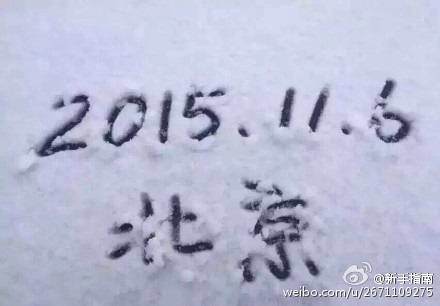 2015.11.6
北京
@新手指南
weibo.com/u/2671109275